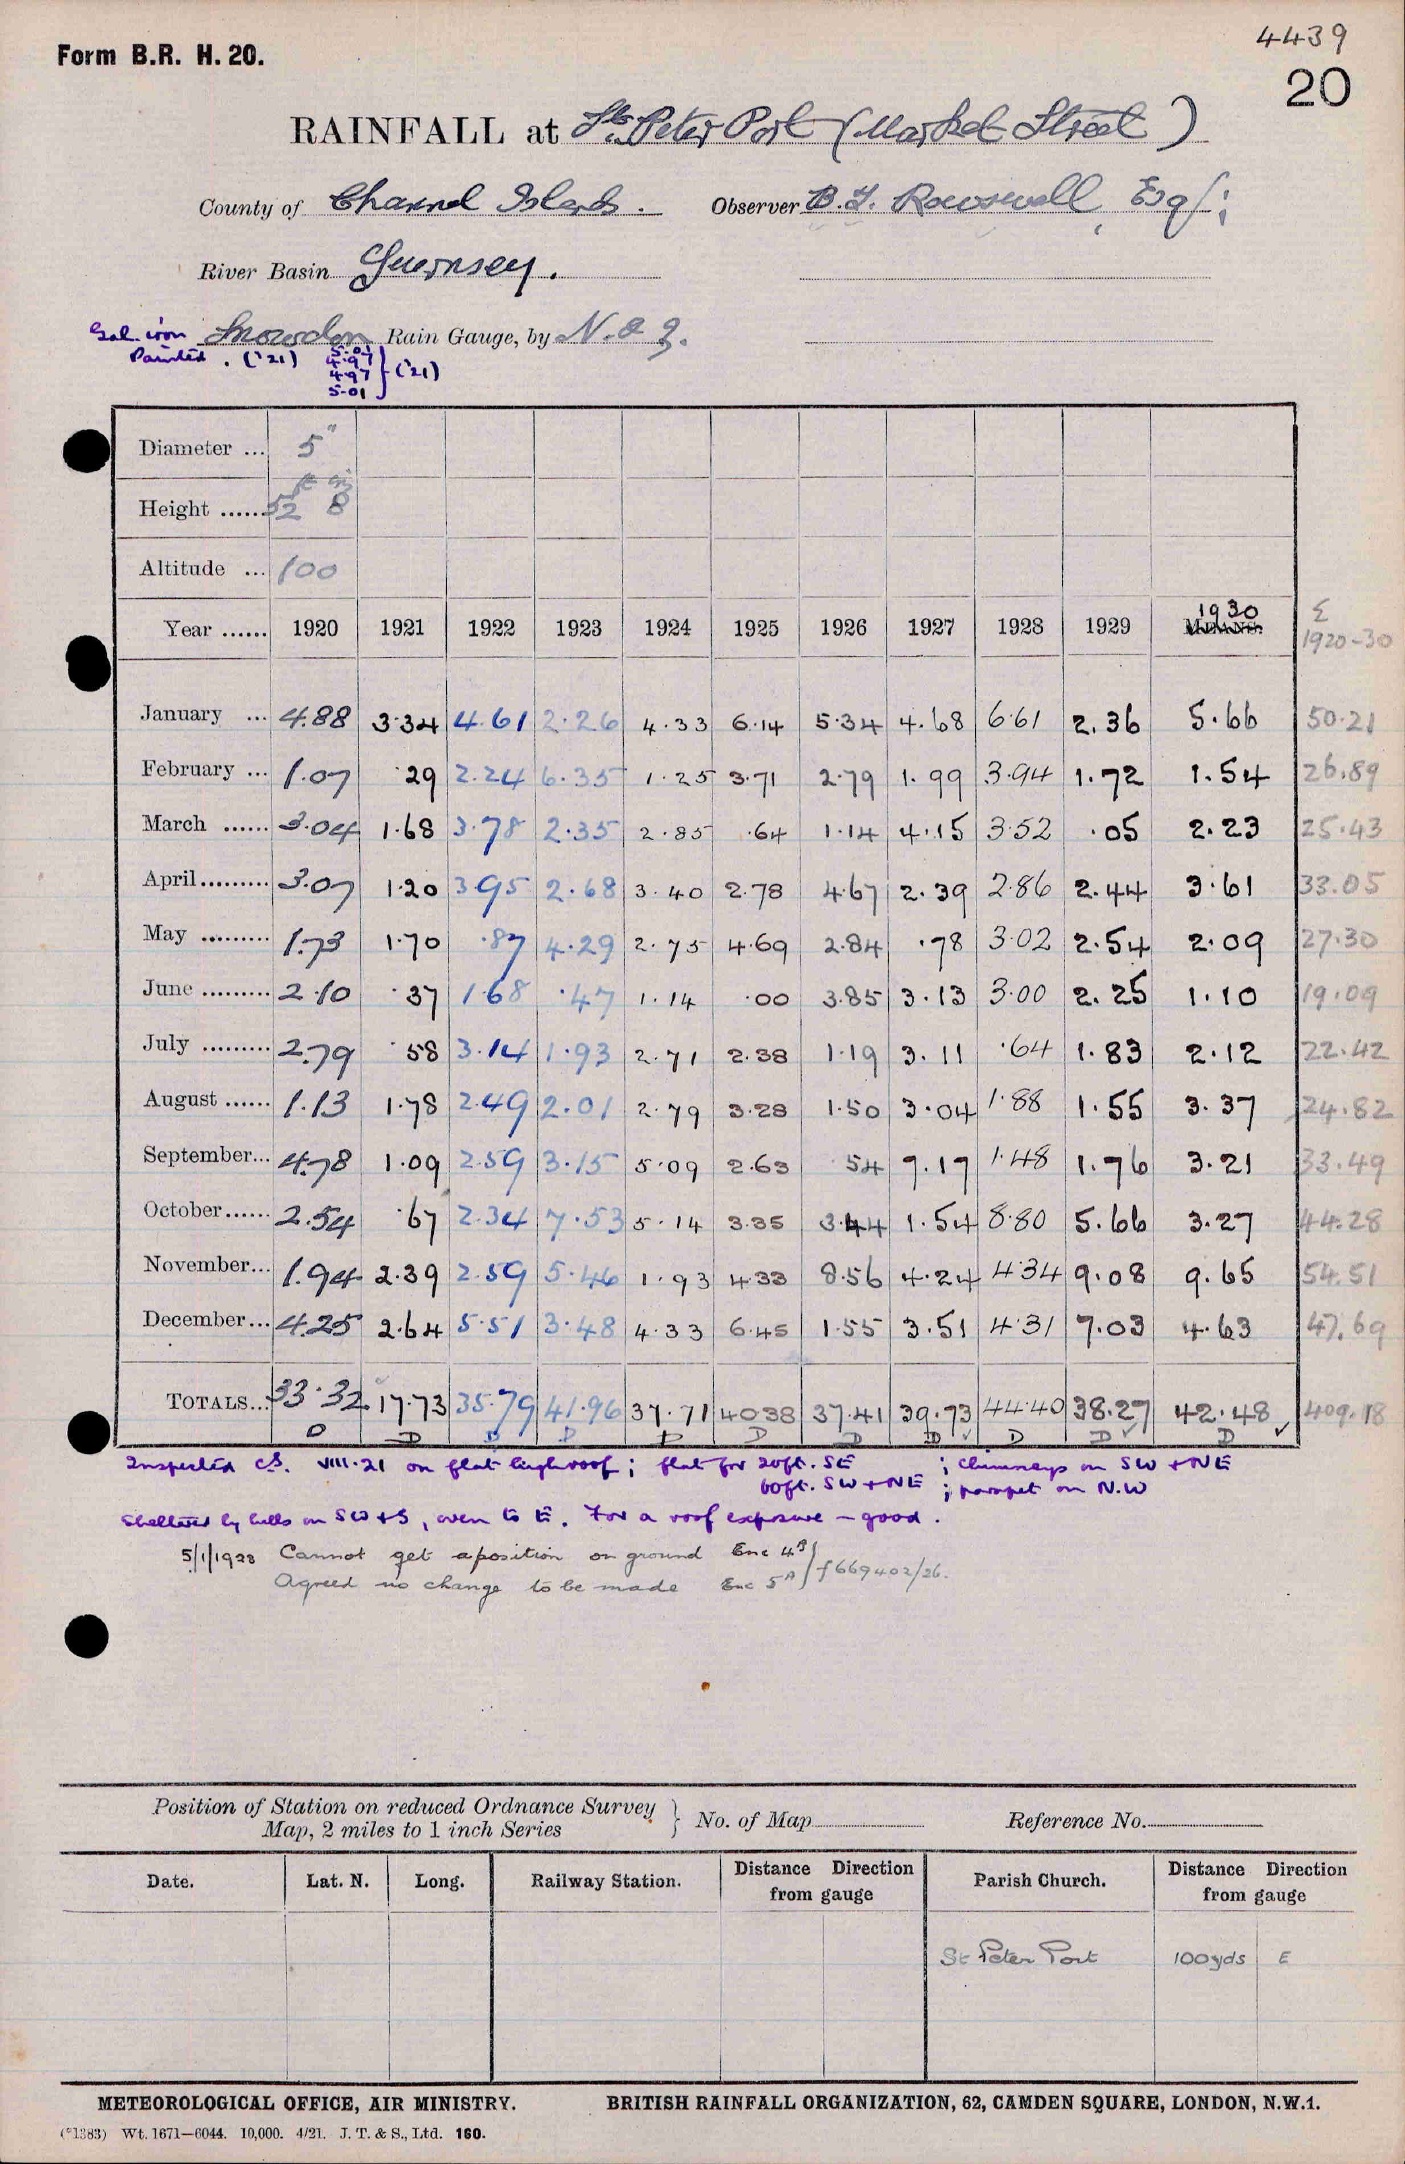 4439
Form B.R. H. 20.
20
RAINFALL at St. Peter Port (Market Street)
County of Channel Islands. Observer B.T. Rowswell, Esq;
River Basin Guernsey.
Gal. iron Snowdon Rain Gauge, by N. & Z.
Painted. ('21) 5.01 4.97 4.97 5.01 } ('21)
Diameter ... 5"
ft in
Height ...... 52 8
Altitude ... 100
Year ...... 1920 1921 1922 1923 1924 1925 1926 1927 1928 1929 1930 Σ 1920-30
January ... 4.88 3.34 4.61 2.26 4.33 6.14 5.34 4.68 6.61 2.36 5.66 50.21
February ... 1.07 .29 2.24 6.35 1.25 3.71 2.79 1.99 3.94 1.72 1.54 26.89
March ...... 3.04 1.68 3.78 2.35 2.85 .64 1.14 4.15 3.52 .05 2.23 25.43
April ......... 3.07 1.20 3.95 2.68 3.40 2.78 4.67 2.39 2.86 2.44 3.61 33.05
May ......... 1.73 1.70 .87 4.29 2.75 4.69 2.84 .78 3.02 2.54 2.09 27.30
June ......... 2.10 .37 1.68 .47 1.14 .00 3.85 3.13 3.00 2.25 1.10 19.09
July ......... 2.79 .58 3.14 1.93 2.71 2.38 1.19 3.11 .64 1.83 2.12 22.42
August ...... 1.13 1.78 2.49 2.01 2.79 3.28 1.50 3.04 1.88 1.55 3.37 24.82
September... 4.78 1.09 2.59 3.15 5.09 2.63 54 7.17 1.48 1.76 3.21 33.49
October...... 2.54 .67 2.34 7.53 5.14 3.35 3.44 1.54 8.80 5.66 3.27 44.28
November... 1.94 2.39 2.59 5.46 1.93 4.33 8.56 4.24 4.34 9.08 9.65 54.51
December... 4.25 2.64 5.51 3.48 4.33 6.45 1.55 3.51 4.31 7.03 4.63 47.69
TOTALS... 33.32 17.73 35.79 41.96 37.71 40.38 37.41 39.73 44.40 38.27 42.48 409.18
D D D D D D D D ✓ D D ✓ D ✓
Inspected C.S. VIII.21 on flat high roof; flat for 20ft. SE ; chimneys on SW + NE
60ft. SW + NE ; parapet on N.W
Sheltered by hills on SW + S, even to E. For a roof exposure - good.
5/1/1928 Cannot get a position on ground Enc 4A
Agreed no change to be made Enc 5A } f 669402/26.
Position of Station on reduced Ordnance Survey } No. of Map Reference No.
Map, 2 miles to 1 inch Series
Date. Lat. N. Long. Railway Station. Distance Direction from gauge Parish Church. Distance Direction from gauge
St Peter Port 100yds E
METEOROLOGICAL OFFICE, AIR MINISTRY. BRITISH RAINFALL ORGANIZATION, 62, CAMDEN SQUARE, LONDON, N.W.1.
(*1383) Wt. 1671—6044. 10,000. 4/21. J. T. & S., Ltd. 160.